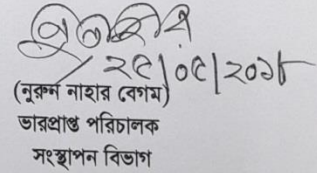 ২৫/০৫/২০১৮
(নুরুন নাহার বেগম)
ভারপ্রাপ্ত পরিচালক
সংস্থাপন বিভাগ